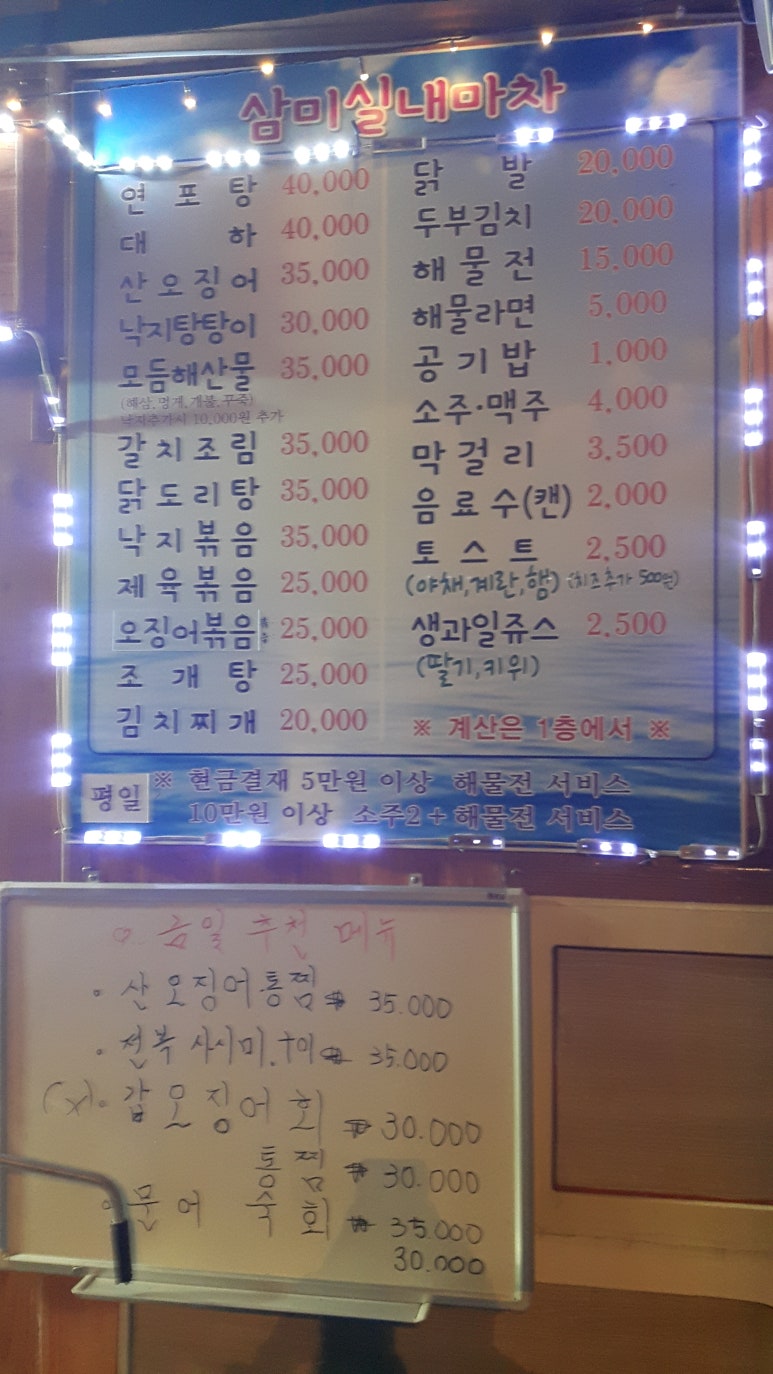 삼미실내마차
연포탕 40,000
대하 40,000
산오징어 35,000
낙지탕탕이 30,000
모듬해산물 35,000
(해삼,멍게,개불,뿌죽)
낙지추가시 10,000원 추가
갈치조림 35,000
닭도리탕 35,000
낙지볶음 35,000
제육볶음 25,000
오징어볶음 25,000
조개탕 25,000
김치찌개 20,000
닭발 20,000
두부김치 20,000
해물전 15,000
해물라면 5,000
공기밥 1,000
소주·맥주 4,000
막걸리 3,500
음료수(캔) 2,000
토스트 2,500
(야채,계란,햄) (치즈추가 500원)
생과일쥬스 2,500
(딸기,키위)
※ 계산은 1층에서 ※
평일 ※ 현금결재 5만원 이상 해물전 서비스
10만원 이상 소주2 + 해물전 서비스
금일 추천 메뉴
· 산오징어통찜 ₩ 35.000
· 전복 사시미.구이 ₩ 35.000
(x). 갑오징어 회 ₩ 30.000
통찜 ₩ 30.000
문어 숙회 ₩ 35.000
30.000